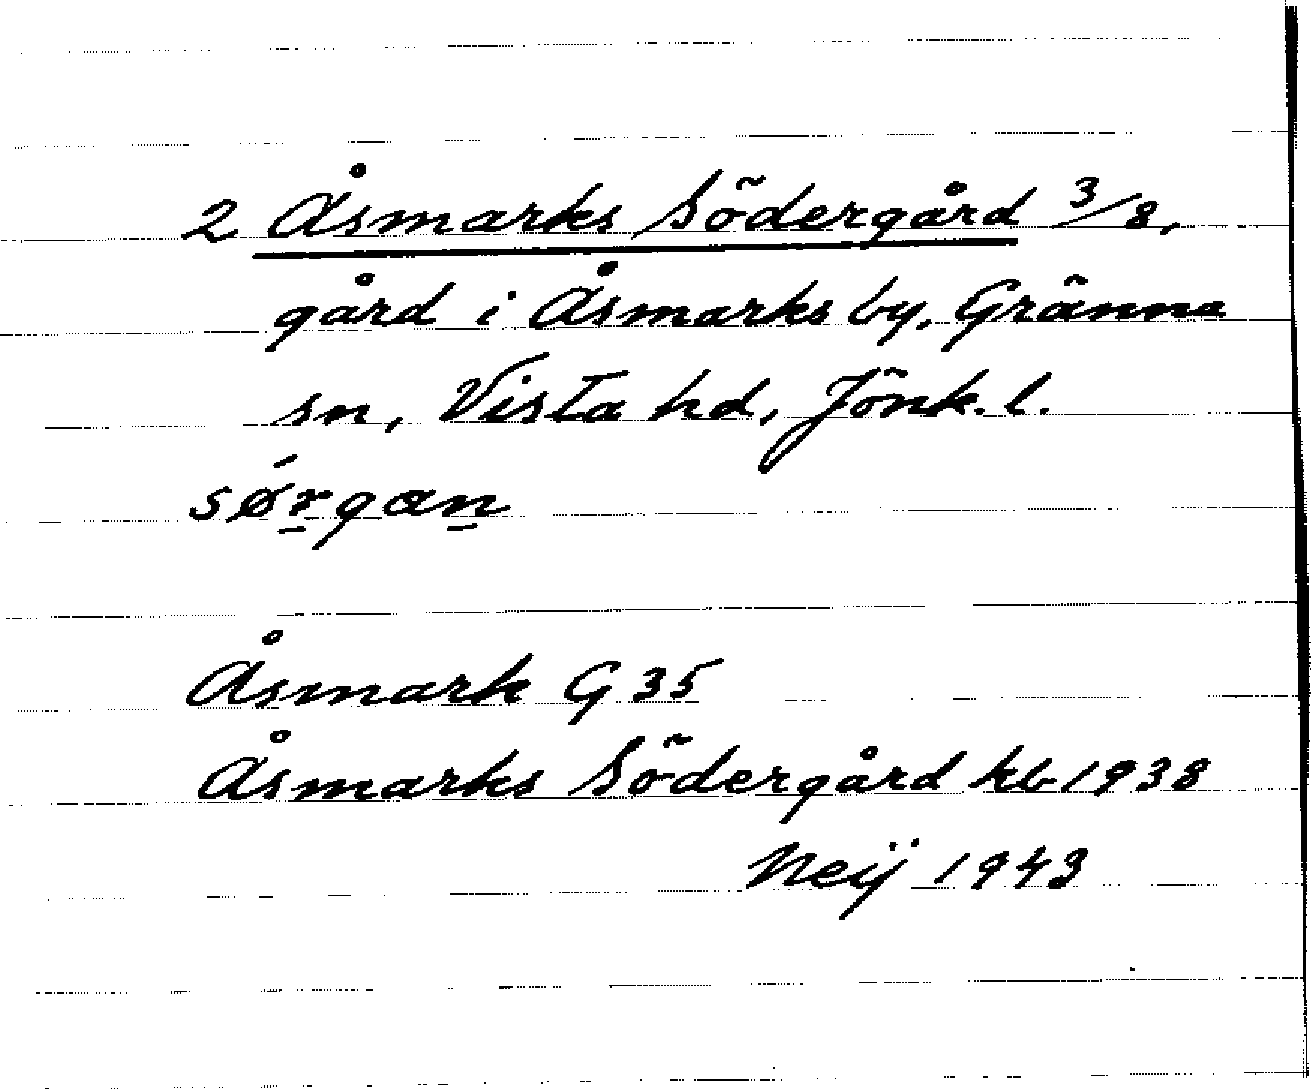 2 Åsmarks Södergård 3/8,
gård i Åsmarks by, Gränna
sn, Vista hd, Jönk. l.
sǿr̠gan̠
Åsmark G 35
Åsmarks Södergård kb 1938
Neij 1943